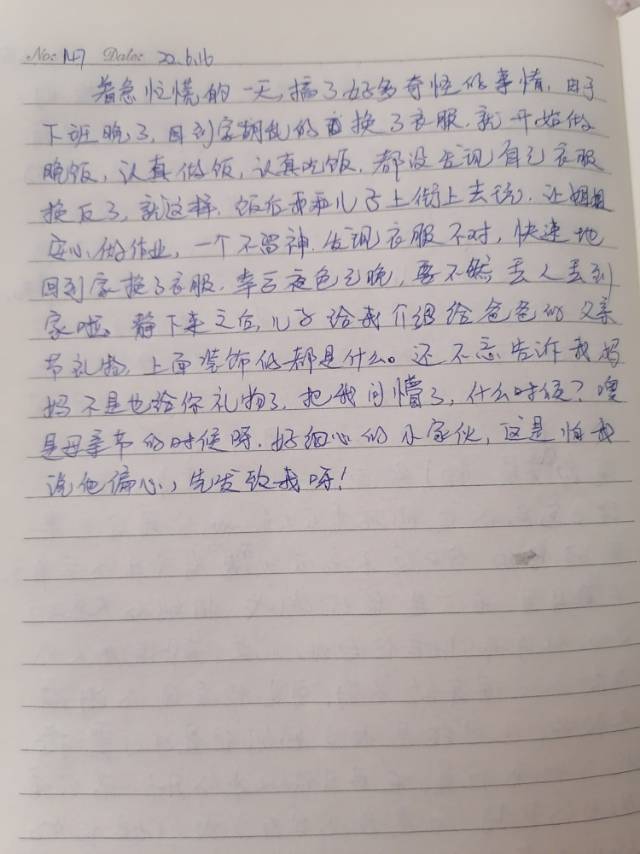 No: 147 Date: 22.6.16
着急忙慌的一天,搞了好多奇怪的事情,由于
下班晚了,回到家胡乱的换了衣服,就开始做
晚饭,认真做饭,认真吃饭,都没发现自己衣服
换反了,就这样,饭后带儿子上街上去玩,让姐姐
安心做作业,一个不留神,发现衣服不对,快速地
回到家换了衣服,幸亏夜色已晚,要不然丢人丢到
家啦。静下来之后,儿子给我介绍给爸爸的父亲
节礼物,上面装饰的都是什么。还不忘告诉我妈
妈不是也给你礼物了,把我问懵了,什么时候?噢
是母亲节的时候呀,好细心的小家伙,这是怕我
说他偏心,先发致我呀!